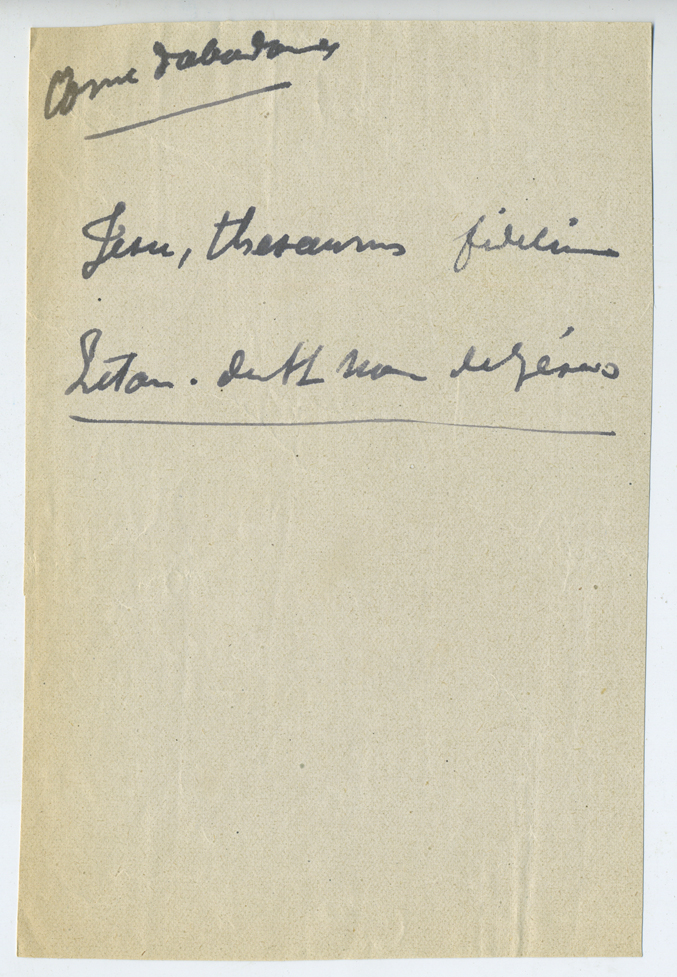 Corne d'abondance
Jesu, thesaurus fidelium
Litan. du St Nom de Jésus